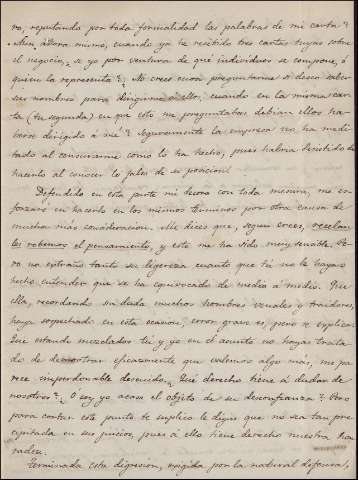 ra, reputando por toda formalidad las palabras de mi carta?
¿Aun ahora mismo, cuando ya he recibido tres cartas tuyas sobre
el negocio, se yo por ventura de qué individuos se compone, ó
quien la representa? ¿No crees ocioso preguntarme si deseo saber
sus nombres para dirigirme á ellos, cuando en la misma car-
ta (tu segunda) en que esto me preguntabas debian ellos ha-
berse dirigido á mí? Seguramente la empresa no ha medi-
tado al censurarme como lo ha hecho, pues habria desistido de
hacerlo al conocer lo falso de su posicion.
Defendido en esta parte mi decoro con toda mesura, me es-
forzaré en hacerlo en los mismos términos por otra causa de
mucha más consideracion. Me dices que, segun crees, recelan
les robemos el pensamiento, y esto me ha sido muy sensible. Pe-
ro no extraño tanto su ligereza cuanto que tú no le hayas
hecho entender que se ha equivocado de medio á medio. Que
ella, recordando sin duda muchos hombres venales y traidores,
haya sospechado en esta ocasion, error grave es, pero se explica:
Que estando mezclados tú y yo en el asunto no hayas trata-
do de demostrar eficazmente que valemos algo más, me pa-
rece imperdonable descuido. ¿Qué derecho tiene á dudar de
nosotros? ¿O soy yo acaso el objeto de su desconfianza? Pero
para cortar este punto te suplico le digas que no sea tan pre-
cipitada en sus juicios, pues á ello tiene derecho nuestra hon-
radez.
Terminada esta digresion, exigida por la natural defensa,